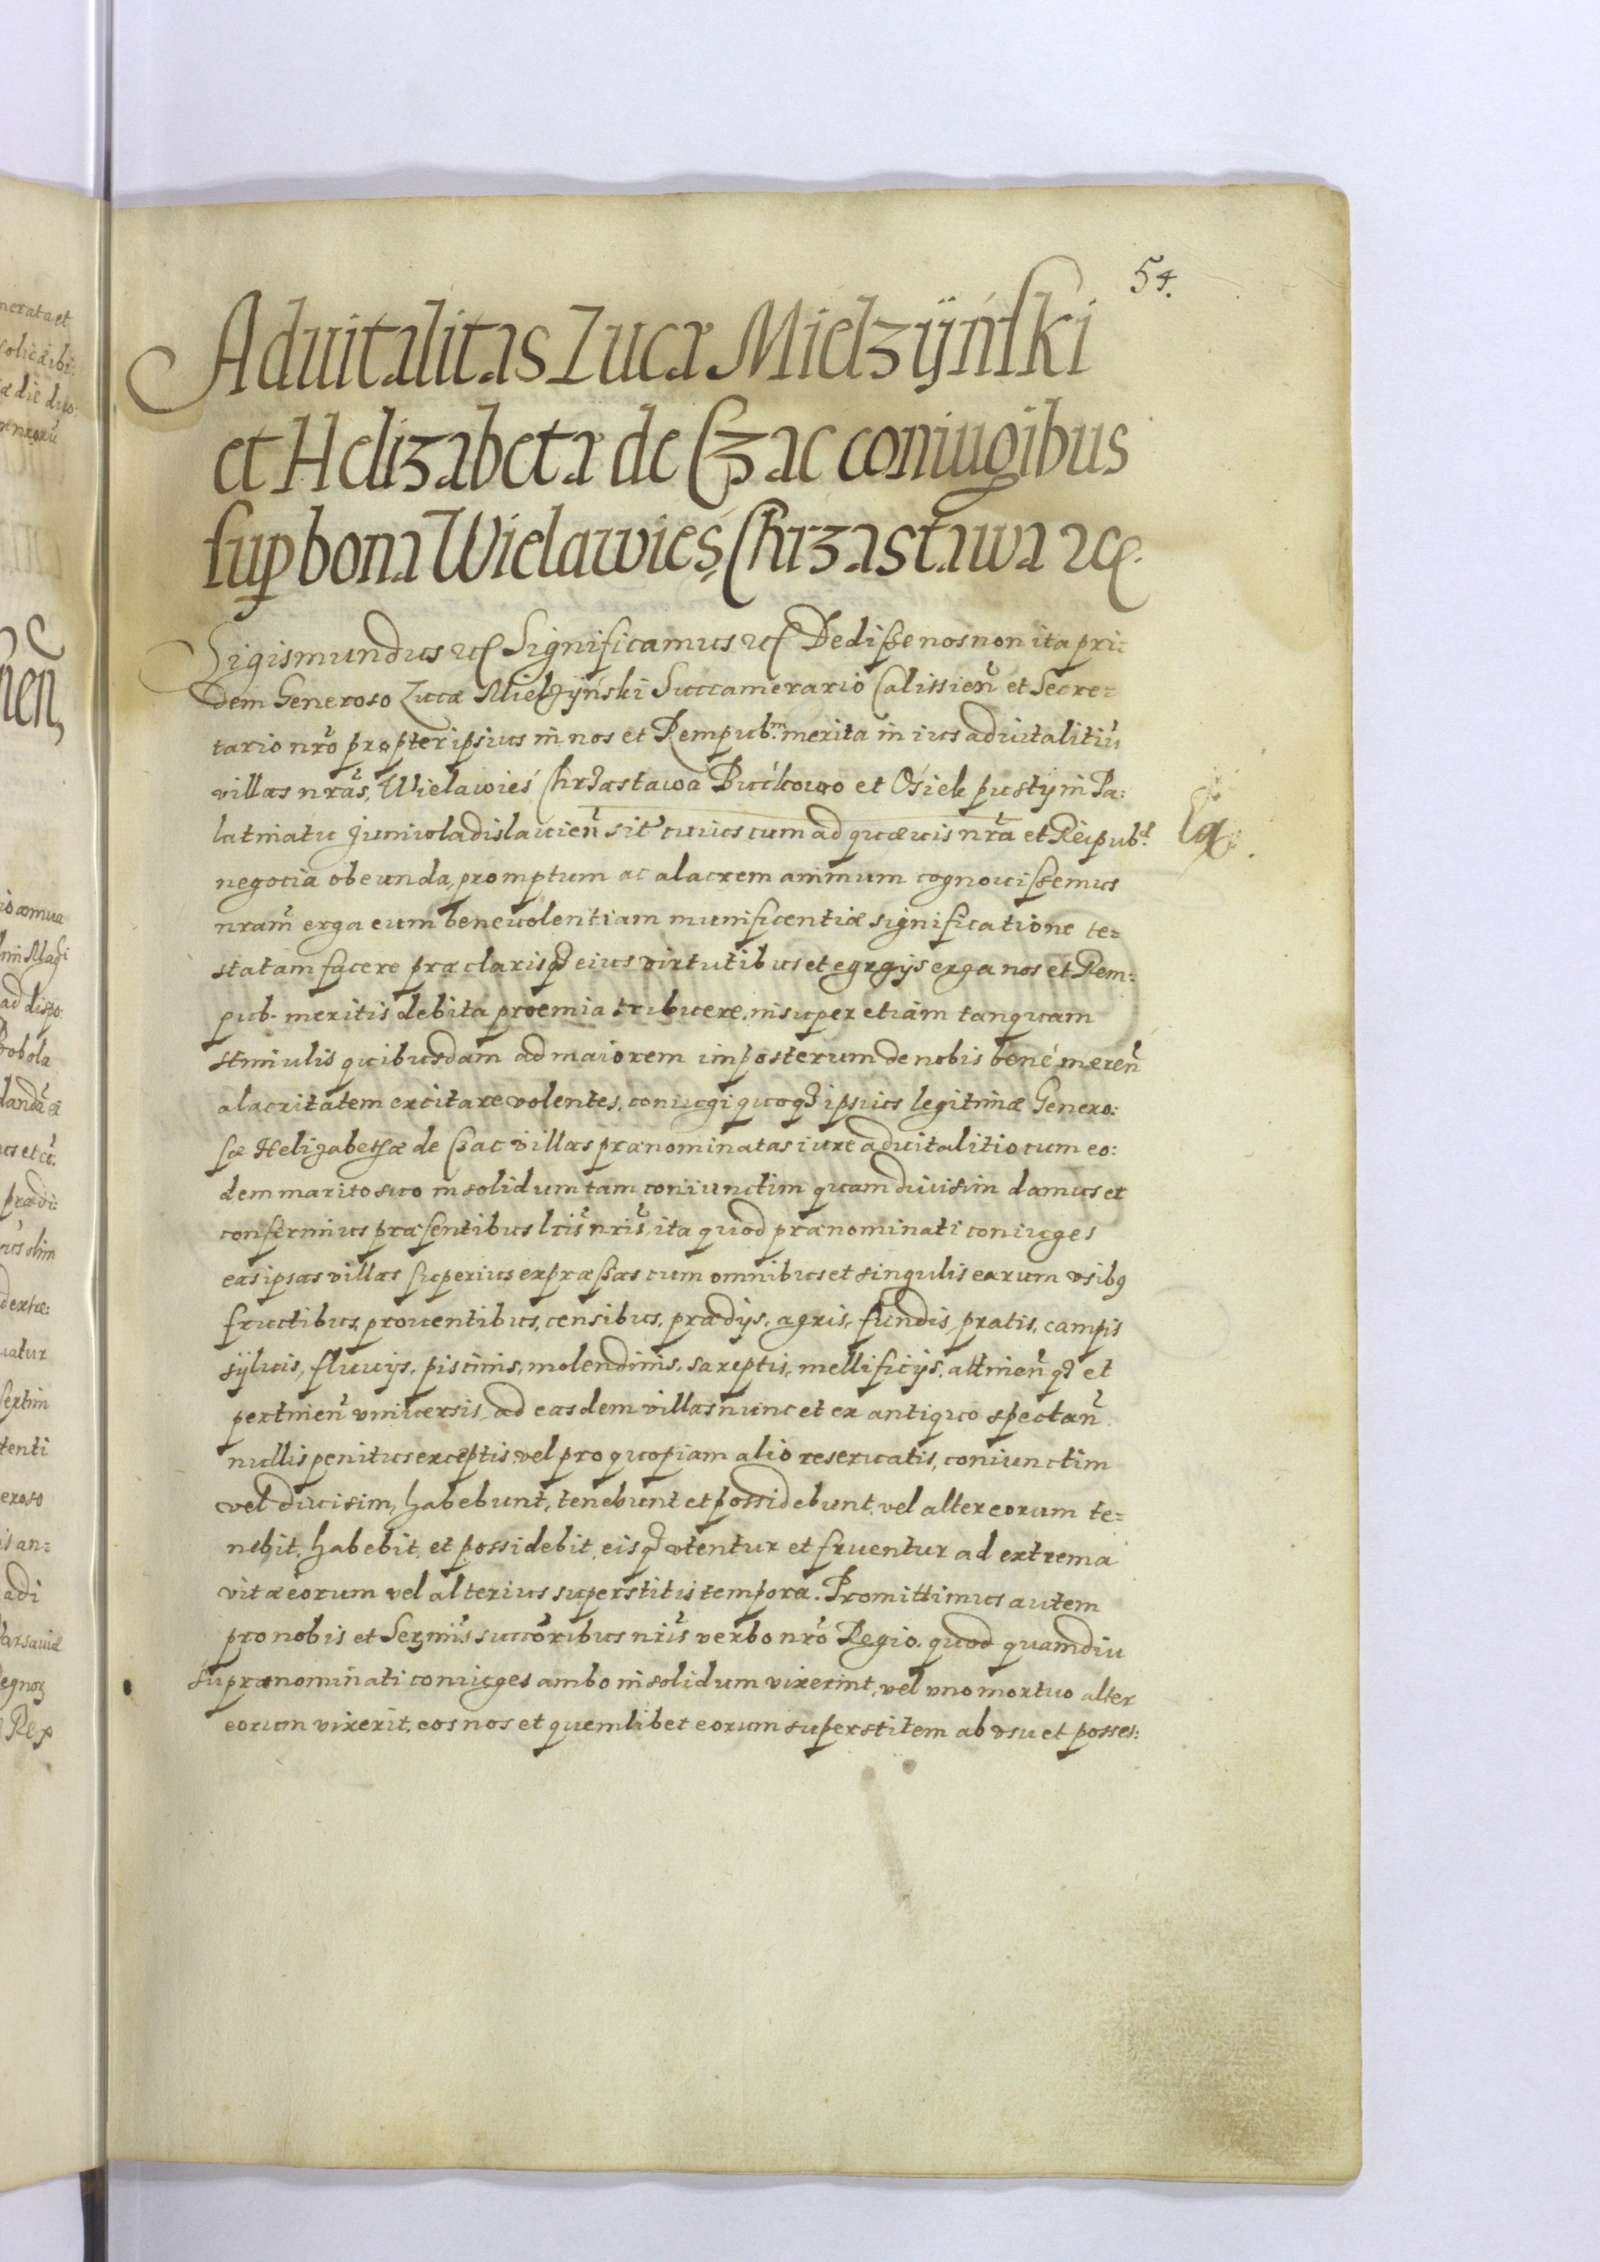 54.
Aduitalitas Lucæ Mielzÿński
et Helizabetæ de Czac coniugibus
sup bona Wielawieś, Chrzastawa etc.
Sigismundus etc Significamus etc Dediße nos non ita pri:
dem Generoso Lucæ Mielzÿński Succamerario Calissien̄ et Secre=
tario nr̄o propter ipsius in nos et Rempub.m merita in ius aduitalitiū
villas nr̄as, Wielawieś Chrzastawa Bućkowo et Osiek pustÿ in Pa:
latinatu Juniuladislauien̄ sit̄ cuius cum ad quæuis nr̄a et Reipub.
negocia obeunda, promptum ac alacrem animum cognouißemus
nram̄ erga eum beneuolentiam munificentiæ significatione te=
statam facere præclarisq3 eius virtutibus et egrægijs erga nos et Rem=
pub. meritis debita proemia tribuere, insuper etiam tanquam
stimulis quibusdam ad maiorem imposterum de nobis bené mæren̄
alacritatem excitare volentes, coniugi quoq3 ipsius legitimæ Genero:
sæ Helizabethæ de Czac villas prænominatas iure aduitalitio cum eo:
dem marito suo in solidum tam coniunctim quam diuisim damus et
conferimus præsentibus lris̄ nris̄, ita quod prænominati coniuges
eas ipsas villas superius expræßas cum omnibus et singulis earum vsib9
fructibus, prouentibus, censibus, prædijs, agris, fundis, pratis, campis
sÿluis, fluuijs, piscinis, molendinis, sareptis, mellificijs, attinen̄ q3 et
pertinen̄ vniuersis, ad easdem villas nunc et ex antiquo spectan̄
nullis penitus exceptis, vel pro quopiam alio reseruatis, coniunctim
vel diuisim, habebunt, tenebunt et possidebunt, vel alter eorum te=
nebit, habebit, et possidebit, eisq3 vtentur et fruentur ad extrema
vitæ eorum vel alterius superstitis tempora. Promittimus autem
pro nobis et Sermīs succōribus nrīs verbo nr̄o Regio. quod quamdiu
suprænominati coniuges ambo in solidum vixerint, vel vno mortuo alter
eorum vixerit, eos nos et quemlibet eorum superstitem ab vsu et posses: